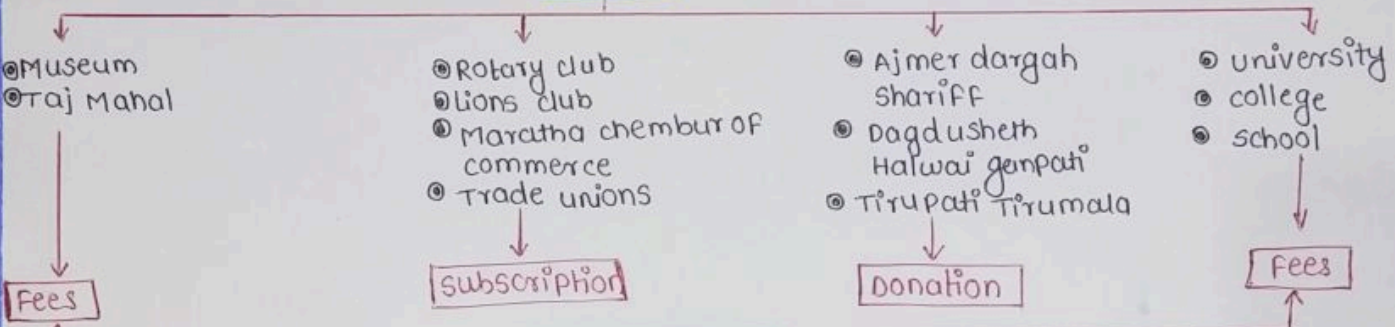 Museum
Taj Mahal
Fees
Rotary club
Lions club
Maratha chembur of
commerce
Trade unions
Subscription
Ajmer dargah
Shariff
Dagdusheth
Halwai ganpati
Tirupati Tirumala
Donation
university
college
school
Fees